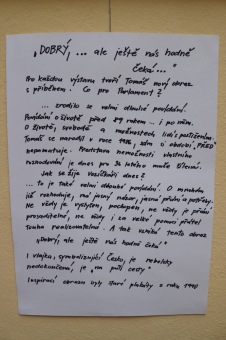 „DOBRÝ, ... ale ještě nás hodně
čeká..."
Pro každou výstavu tvoří Tomáš nový obraz
s příběhem. Co pro Parlament?
... zrodilo se velmi dlouhé povídání.
Povídání o životě před 89 rokem ... i po něm.
O životě, svobodě a možnostech lidí s postižením.
Tomáš se narodil v roce 1986, sám si období „PŘED"
nepamatuje. Představa nemožnosti vlastního
rozhodování je dnes pro 36 letého muže
Jak se žije vozíčkáři dnes?
... to je také velmi dlouhé povídání. O mnohém
již rozhoduje, má jasný názor, jasná přání a potřeby.
Ne vždy je vyslyšen, pochopen, ne vždy je přání
prosaditelné, ne vždy i za velké pomoci přátel
touha realizovatelná. A tak vzniká tento obraz
„Dobrý, ale ještě nás hodně čeká"
I vlajka, symbolizující Česko, je nebolsky
nedokončená, je „na půli cesty"
Inspirací obrazu byly staré plakáty z roku 1990